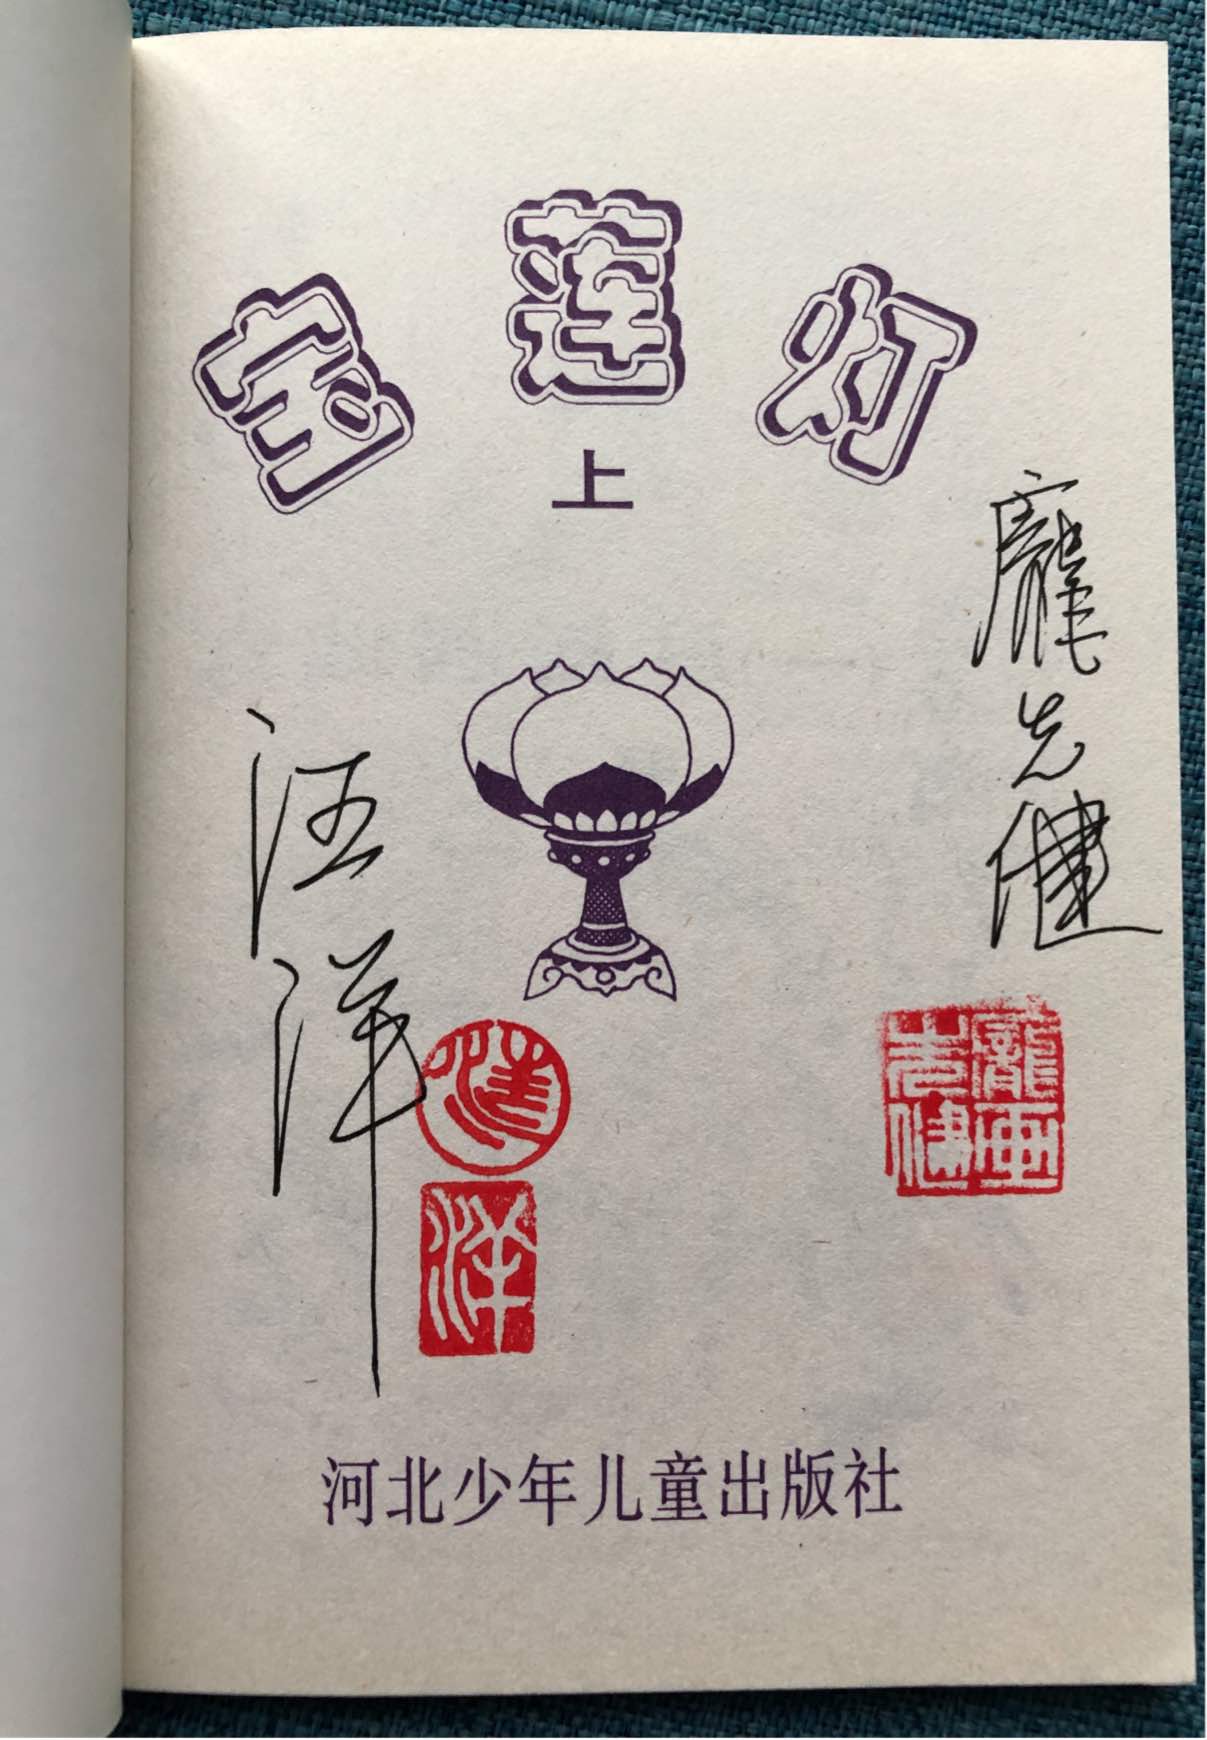 宝莲灯
上
龐先健
汪洋
龐先健画
汪
洋
河北少年儿童出版社